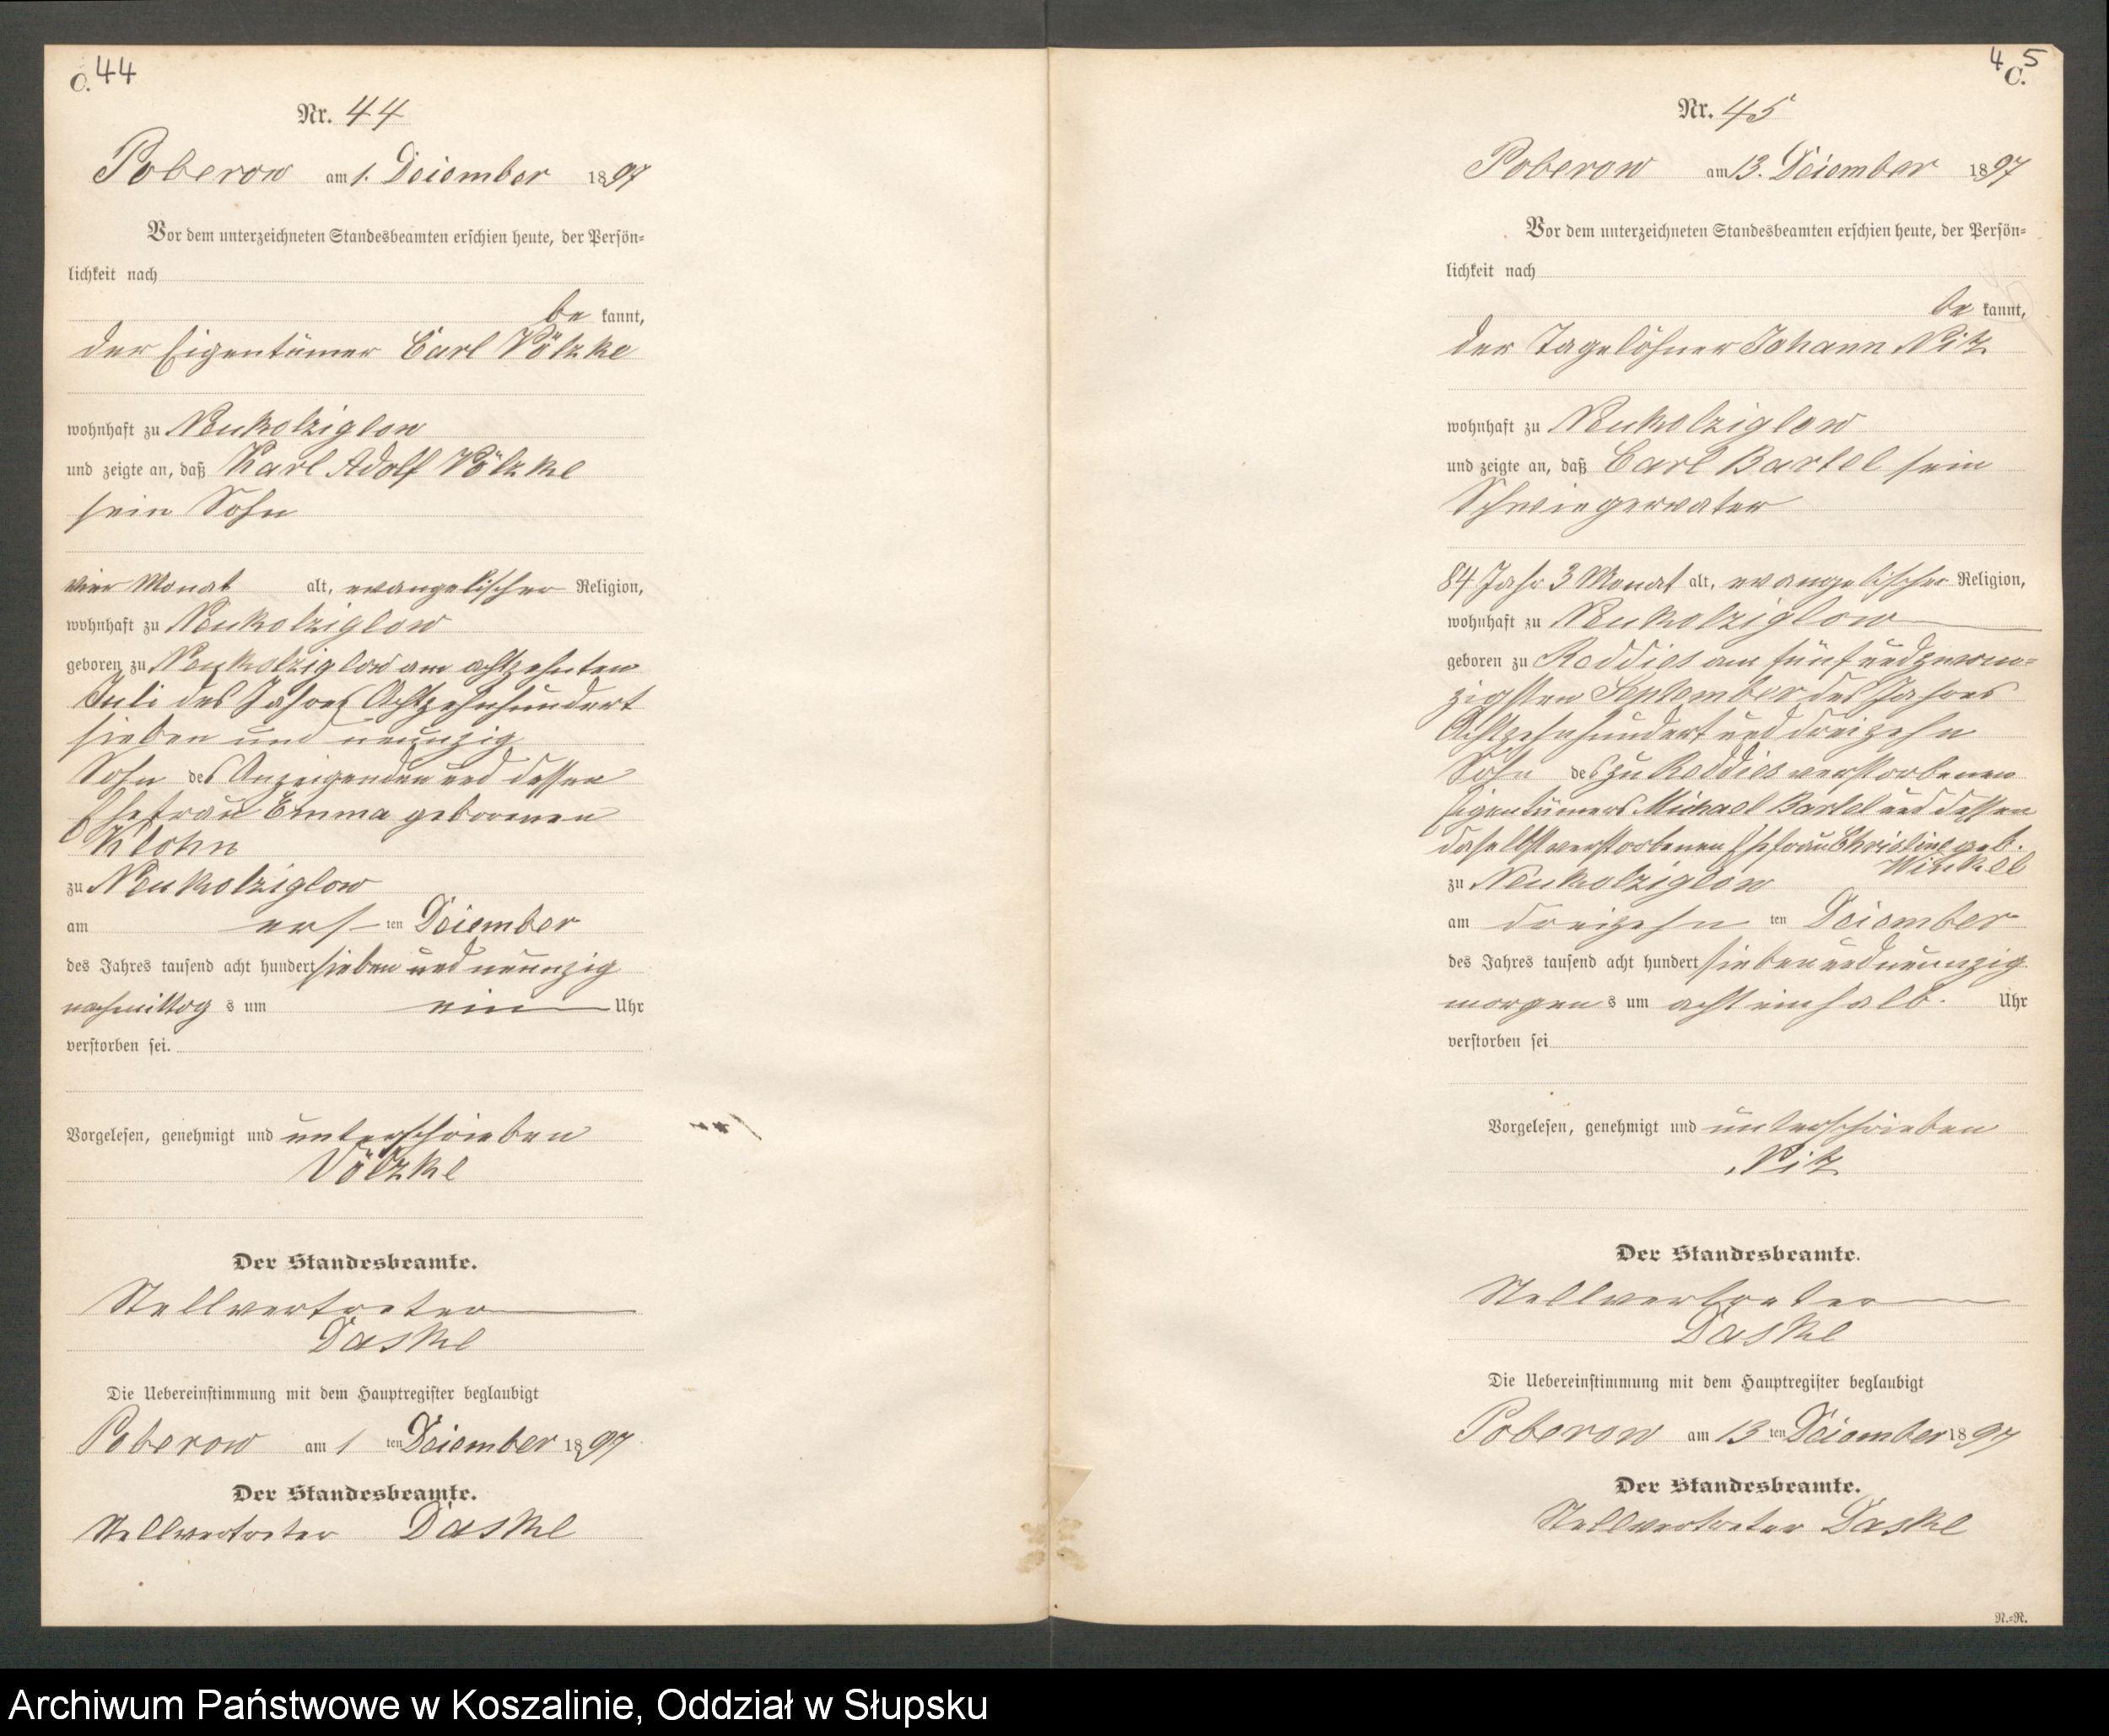 C. 44
Nr. 44
Poberow am 1. Dezember 1897
Vor dem unterzeichneten Standesbeamten erschien heute, der Persön-
lichkeit nach
be kannt,
der Eigentümer Carl Völzke
wohnhaft zu Neukolziglow
und zeigte an, daß Karl Adolf Völzke
sein Sohn
vier Monat alt, evangelischer Religion,
wohnhaft zu Neukolziglow
geboren zu Neukolziglow am achtzehnten
Juli des Jahres Achtzehnhundert
sieben und neunzig
Sohn des Anzeigenden und dessen
Ehefrau Emma geborenen
Klohn
zu Neukolziglow
am ersten Dezember
des Jahres tausend acht hundert sieben und neunzig
nachmittag s um ein Uhr
verstorben sei.
Vorgelesen, genehmigt und unterschrieben
Völzke
Der Standesbeamte.
Stellvertreter
Daske
Die Uebereinstimmung mit dem Hauptregister beglaubigt
Poberow am 1 ten Dezember 1897
Der Standesbeamte.
Stellvertreter Daske
45 C.
Nr. 45
Poberow am 13. Dezember 1897
Vor dem unterzeichneten Standesbeamten erschien heute, der Persön-
lichkeit nach
be kannt,
der Tagelöhner Johann Nitz
wohnhaft zu Neukolziglow
und zeigte an, daß Carl Bartel sein
Schwiegervater
84 Jahr 3 Monat alt, evangelischer Religion,
wohnhaft zu Neukolziglow
geboren zu Reddies am fünfundzwan-
zigsten September des Jahres
Achtzehnhundert und dreizehn
Sohn des zu Reddies verstorbenen
Eigentümers Michael Bartel und dessen
daselbst verstorbenen Ehefrau Christine geb.
Winkel
zu Neukolziglow
am dreizehn ten Dezember
des Jahres tausend acht hundert sieben und neunzig
morgen s um acht einhalb Uhr
verstorben sei
Vorgelesen, genehmigt und unterschrieben
Nitz
Der Standesbeamte.
Stellvertreter
Daske
Die Uebereinstimmung mit dem Hauptregister beglaubigt
Poberow am 13 ten Dezember 1897
Der Standesbeamte.
Stellvertreter Daske
N.=N.
Archiwum Państwowe w Koszalinie, Oddział w Słupsku